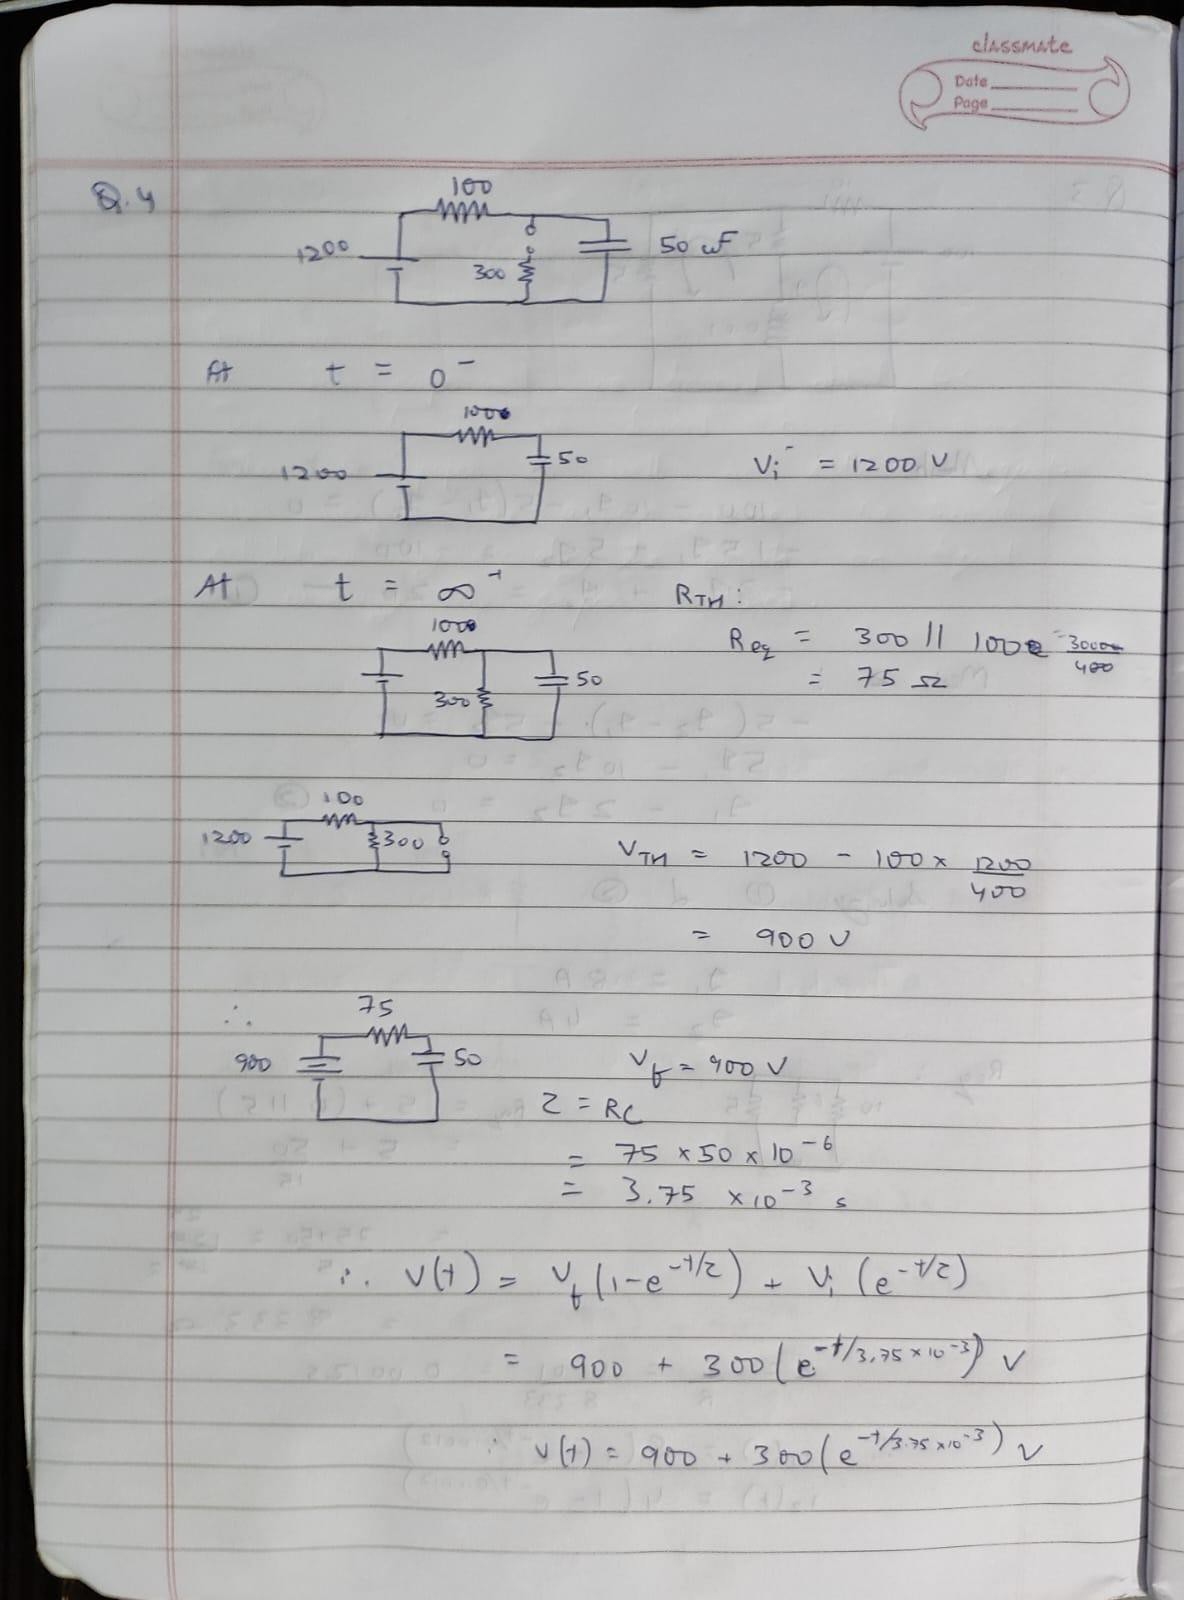 classmate
Date
Page
Q.4
100
1200
300
50 uF
At t = 0⁻
1000
1200
50
Vi⁻ = 1200 V
At t = ∞⁺
RTH :
1000
300
50
Req = 300 || 100 = 30000/400
= 75 Ω
100
1200
300
VTH = 1200 - 100 x 1200/400
= 900 V
∴
75
900
50
Vf = 900 V
τ = RC
= 75 x 50 x 10⁻⁶
= 3.75 x 10⁻³ s
∴ V(t) = Vf (1-e^-t/τ) + Vi (e^-t/τ)
= 900 + 300 (e^-t/3.75 x 10⁻³) V
∴ V(t) = 900 + 300 (e^-t/3.75 x 10⁻³) V